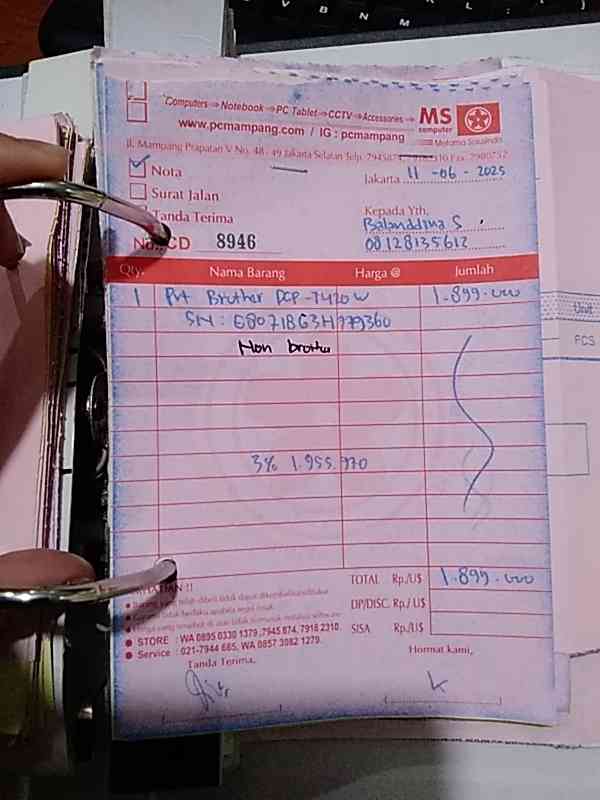 Computers ⇒ Notebook ⇒ PC Tablet ⇒ CCTV ⇒ Accessories ⇒
MS
computer
www.pcmampang.com / IG : pcmampang
Metama Sauaindo
Jl. Mampang Prapatan V No. 48 - 49 Jakarta Selatan Telp.
Nota
Jakarta 11 - 06 - 2025
Surat Jalan
Tanda Terima
Kepada Yth,
No. CD 8946
08128135612
Qty. Nama Barang Harga @ Jumlah
1 Prt Brother DCP-T420W 1.899.000
SN : E80718G3H779360
Non brother
3% 1.955.970
TOTAL Rp./U$ 1.899.000
DP/DISC. Rp./U$
SISA Rp./U$
STORE : WA 0895 0330 1379 ,7945 874, 7918 2310.
Service : 021-7944 685, WA 0857 3082 1279.
Tanda Terima, Hormat kami,
Unit
PCS